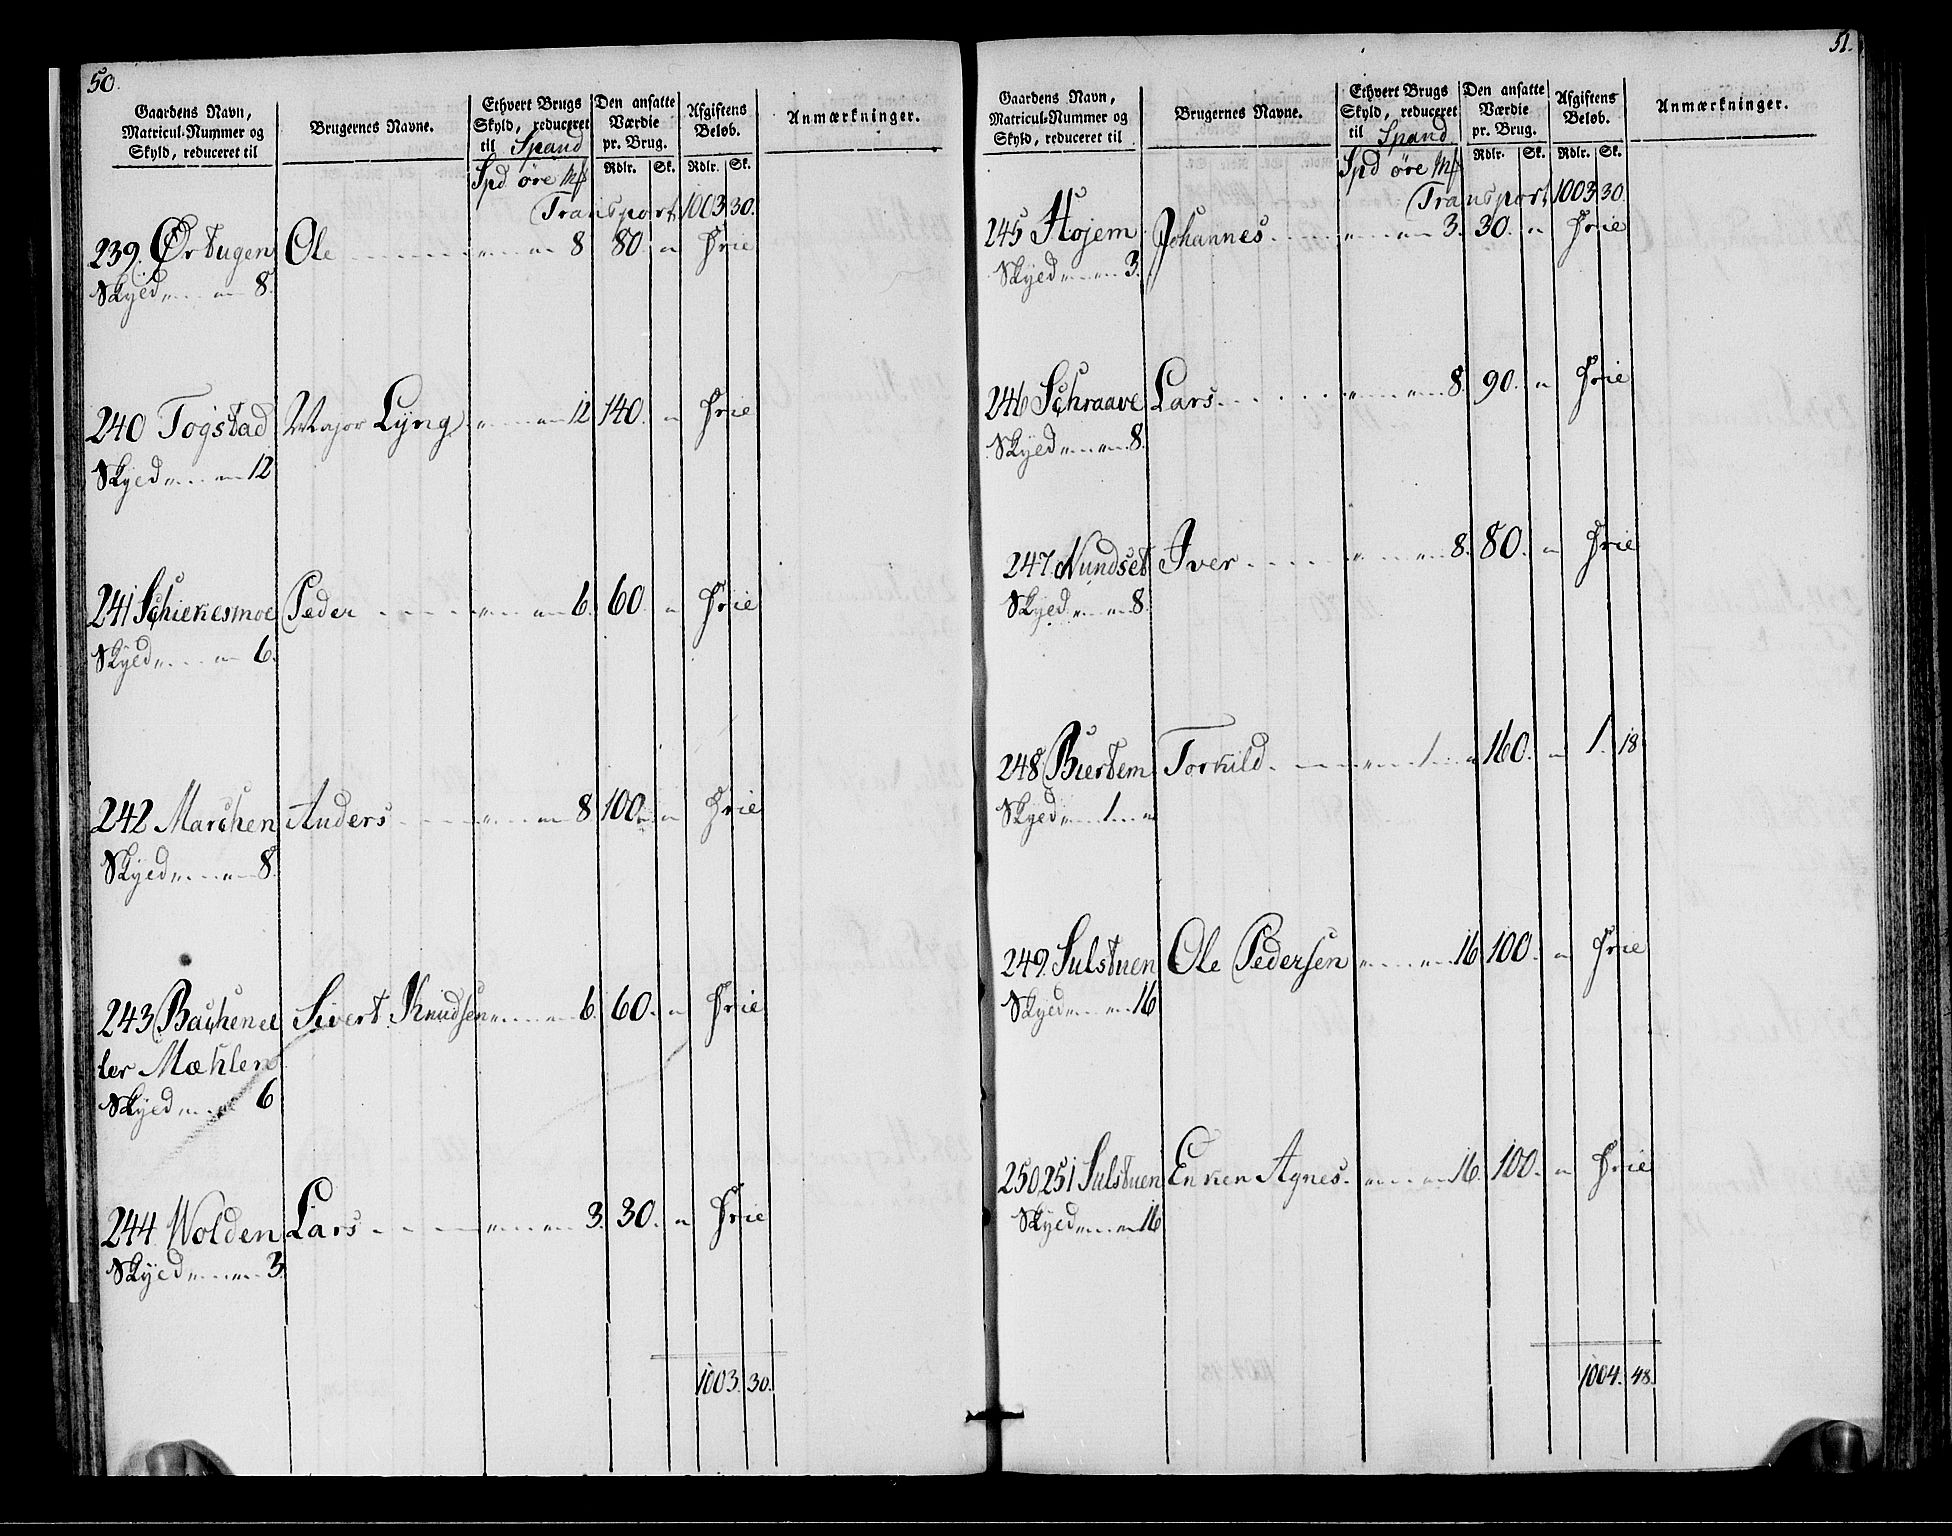 50.
Gaardens Navn, Matricul-Nummer og Skyld, reduceret til
Brugernes Navne.
Ethvert Brugs Skyld, reduceret til Spand
Den ansatte Værdie pr. Brug.
Afgiftens Beløb.
Anmærkninger.
Spd øre Mk
Rdlr. Sk. Rdlr. Sk.
Transport 1003 30.
239. Ørtugen Ole " " 8 80. " Frie
Skyed " " 8.
240 Togstad Major Lyng " " 12 140. " Frie
Skyed " " 12
241 Schienesmoe Peder " " 6. 60. " Frie
Skyed " " 6.
242 Marchen Anders " " 8 100. " Frie
Skyed " " 8.
243 Bachen el Sivert Knudsen " " 6. 60. " Frie
ler Mæhlen
Skyed " " 6
244 Wolden Lars " " 3. 30. " Frie
Skyed " " 3.
1003. 30.
51.
Gaardens Navn, Matricul-Nummer og Skyld, reduceret til
Brugernes Navne.
Ethvert Brugs Skyld, reduceret til Spand
Den ansatte Værdie pr. Brug.
Afgiftens Beløb.
Anmærkninger.
Spd øre Mk
Rdlr. Sk. Rdlr. Sk.
Transport 1003 30.
245 Hojem Johannes " " 3. 30. " Frie
Skyed " " 3.
246 Schraave Lars " " 8. 90. " Frie
Skyed " " 8.
247. Nundset Iver " " 8. 80. " Frie
Skyed " " 8.
248 Biertem Torkild " 1. " 160. " 1. 18
Skyed " 1. "
249. Sulstuen Ole Pedersen " " 16 100. " Frie
Skyed " " 16
250, 251 Sulstuen Enken Agnes. " " 16. 100. " Frie
Skyed " " 16
1004. 48.